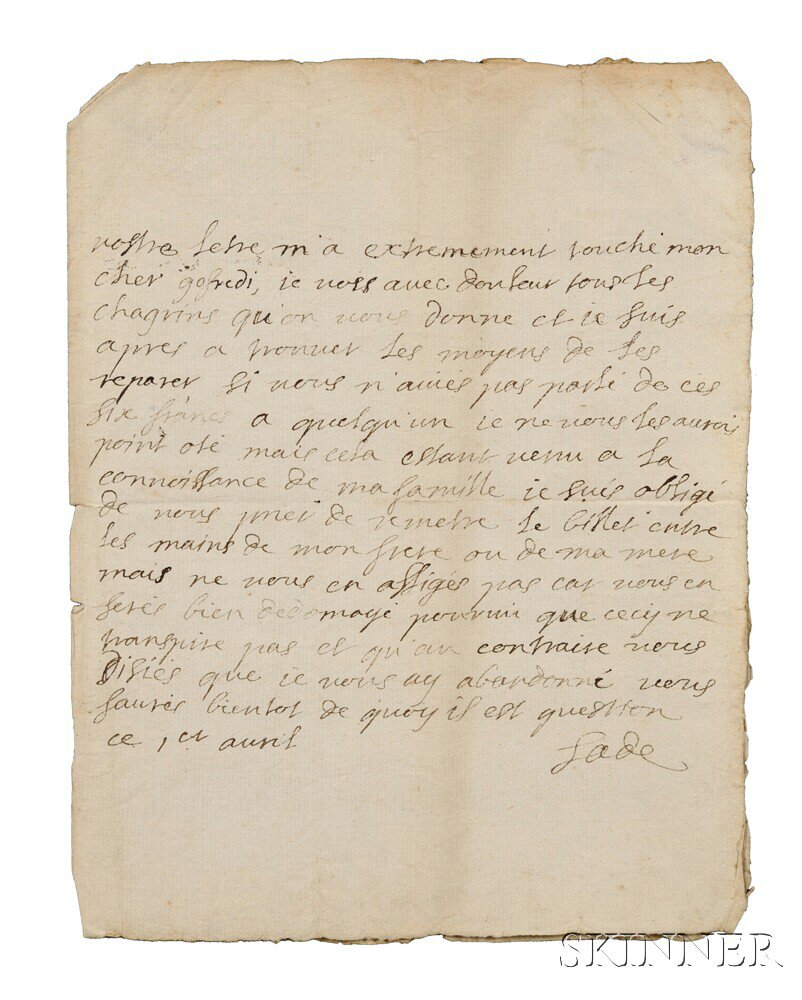 vostre letre m'a extremement touché mon
cher gofredi, je vois avec douleur tous les
chagrins qu'on vous donne et je suis
apres a trouver les moyens de les
reparer si vous n'aviés pas parlé de ces
six francs a quelqu'un je ne vous les aurois
point oté mais cela estant venu a la
connoissance de ma famille je suis obligé
de vous prier de remetre le billet entre
les mains de mon frere ou de ma mere
mais ne vous en afligés pas car vous en
serés bien dedomagé pourvu que cecy ne
transpire pas et qu'au contraire vous
disiés que je vous ay abandonné vous
saurés bientot de quoy il est question
ce 1 er avril
Sade
SKINNER